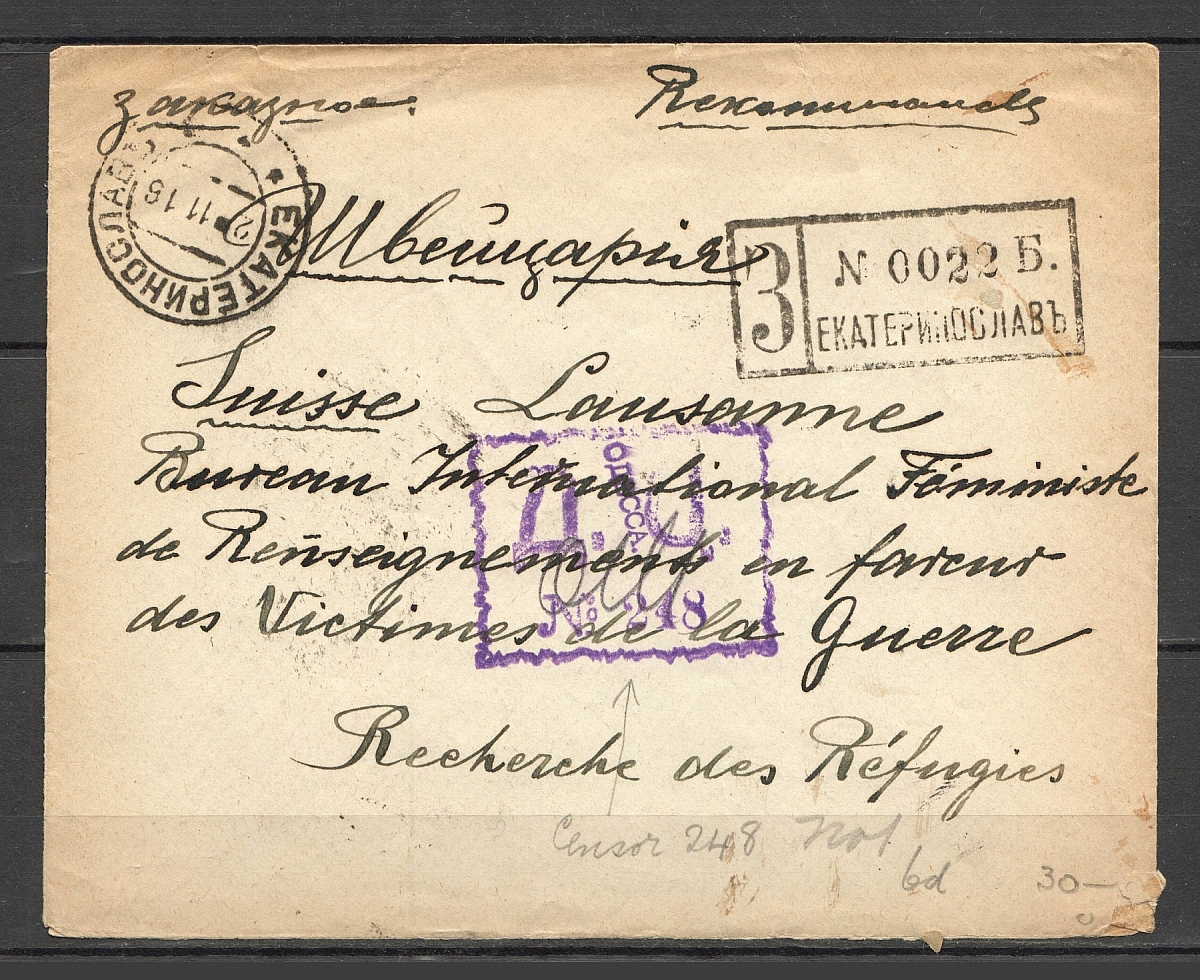 заказное.
ЕКАТЕРИНОСЛАВЪ
2 11 16
Швейцарія
З
№ 0022 Б.
ЕКАТЕРИНОСЛАВЪ
Suisse Lausanne
Bureau International Féministe
de Renseignements en faveur
des Victimes de la Guerre
ОДЕССА.
Д. Ц.
№ 248
Recherche des Réfugies
Censor 248 Not
bd
30—